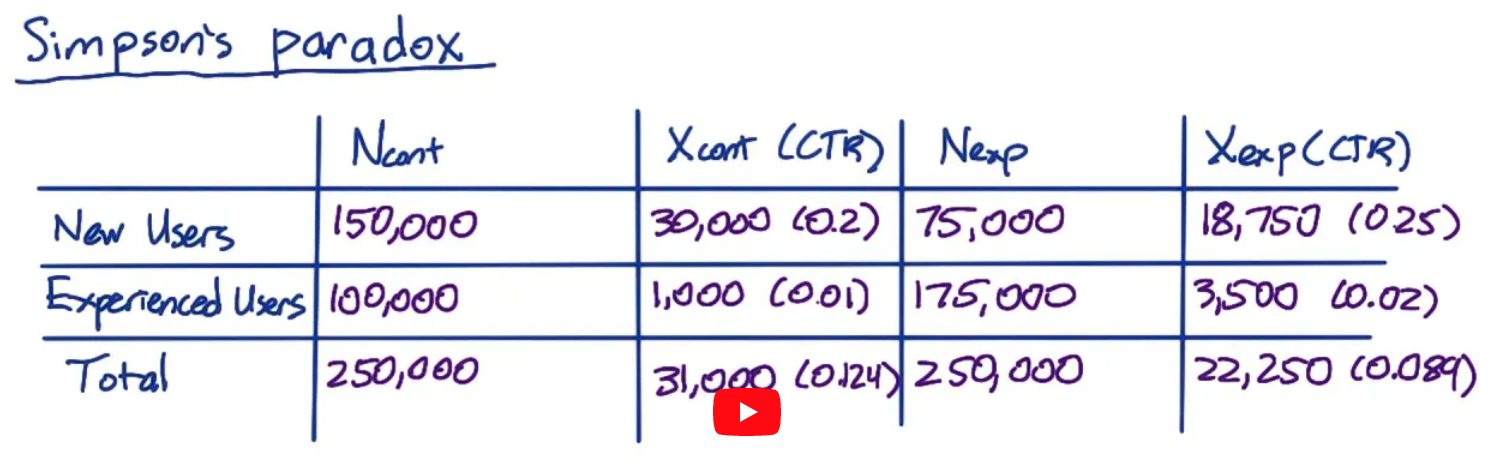 Simpson's paradox
Ncont Xcont (CTR) Nexp Xexp (CTR)
New Users 150,000 30,000 (0.2) 75,000 18,750 (0.25)
Experienced Users 100,000 1,000 (0.01) 175,000 3,500 (0.02)
Total 250,000 31,000 (0.124) 250,000 22,250 (0.089)